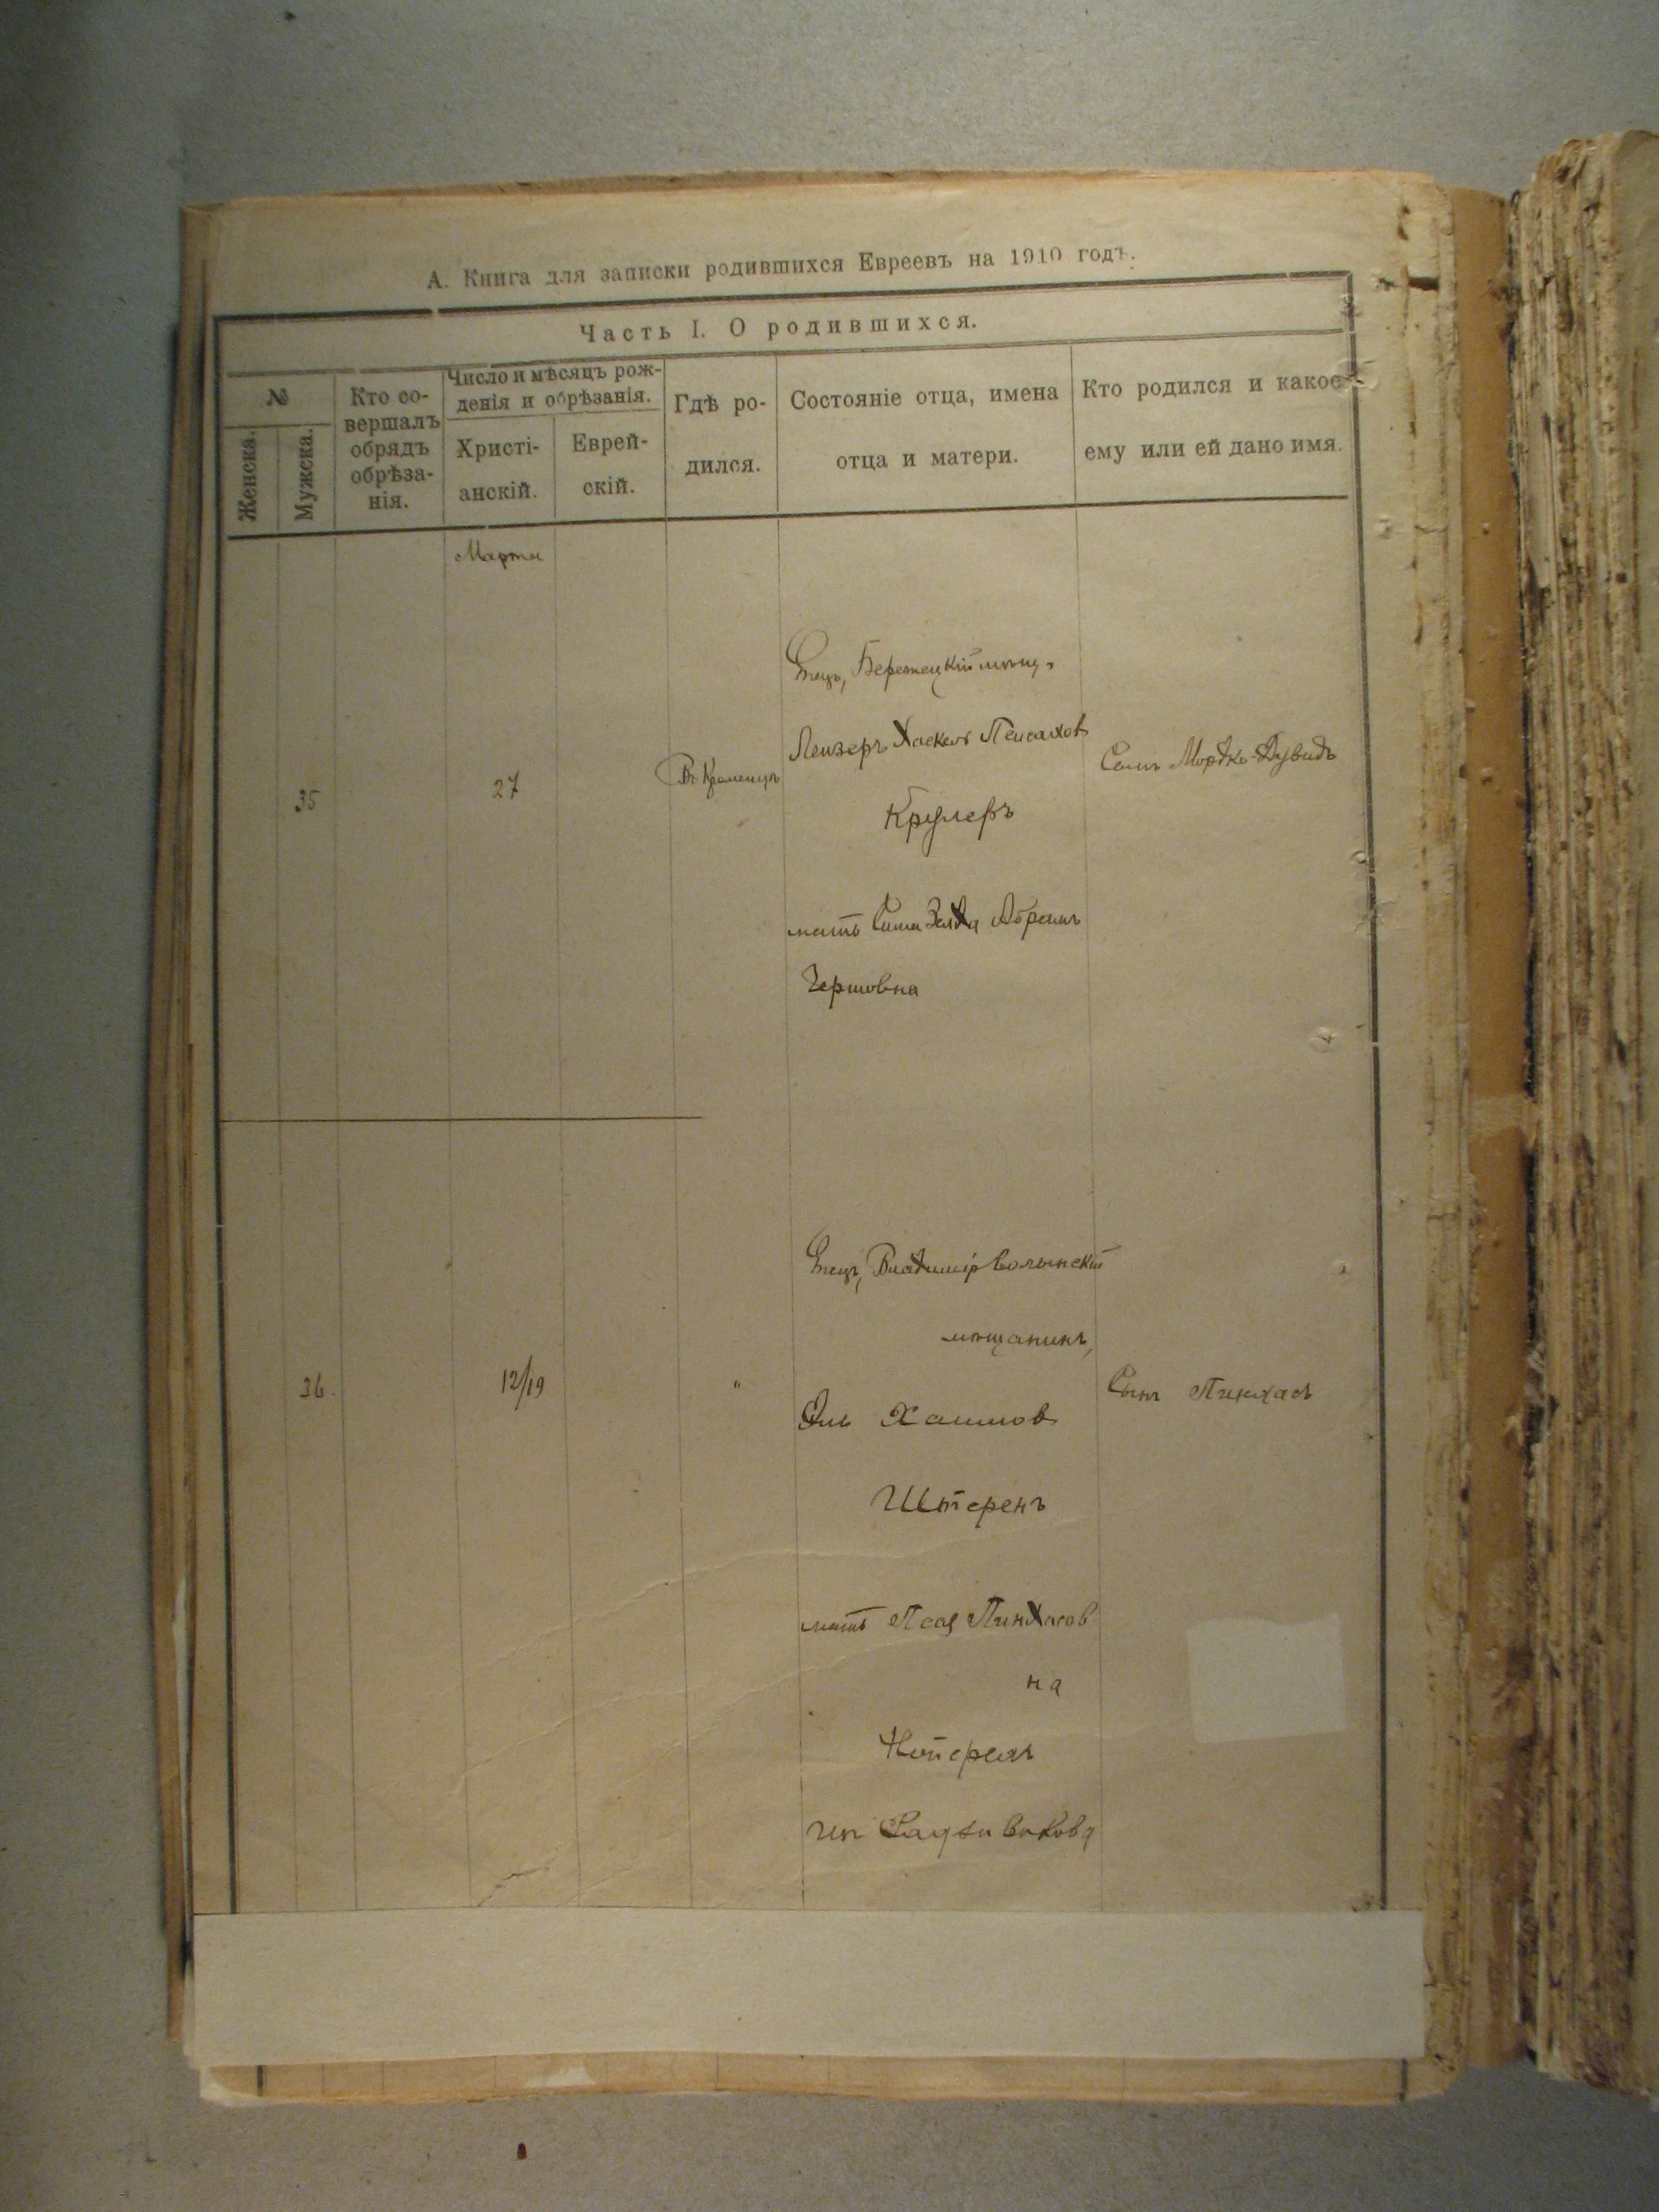 А. Книга для записки родившихся Евреевъ на 1910 годъ.
Часть I. О родившихся.
№
Женска.
Мужска.
Кто со-
вершалъ
обрядъ
обрѣза-
нія.
Число и мѣсяцъ рож-
денія и обрѣзанія.
Христі-
анскій.
Еврей-
скій.
Гдѣ ро-
дился.
Состояніе отца, имена
отца и матери.
Кто родился и какое
ему или ей дано имя.
Марта
35
27
Въ Кременцѣ
Отецъ, Бережецкій мѣщ.
Лейзеръ Хаскель Пейсахов
Крулеръ
мать Сима Зелда Абрамъ
Гершовна
Сынъ Мордко-Дувидъ
36.
12/19
"
Отецъ, Владимір Волынскій
мѣщанинъ,
Эль Хаимов
Штеренъ
мать Песя Пинхасов
на
Сынъ Пинхасъ